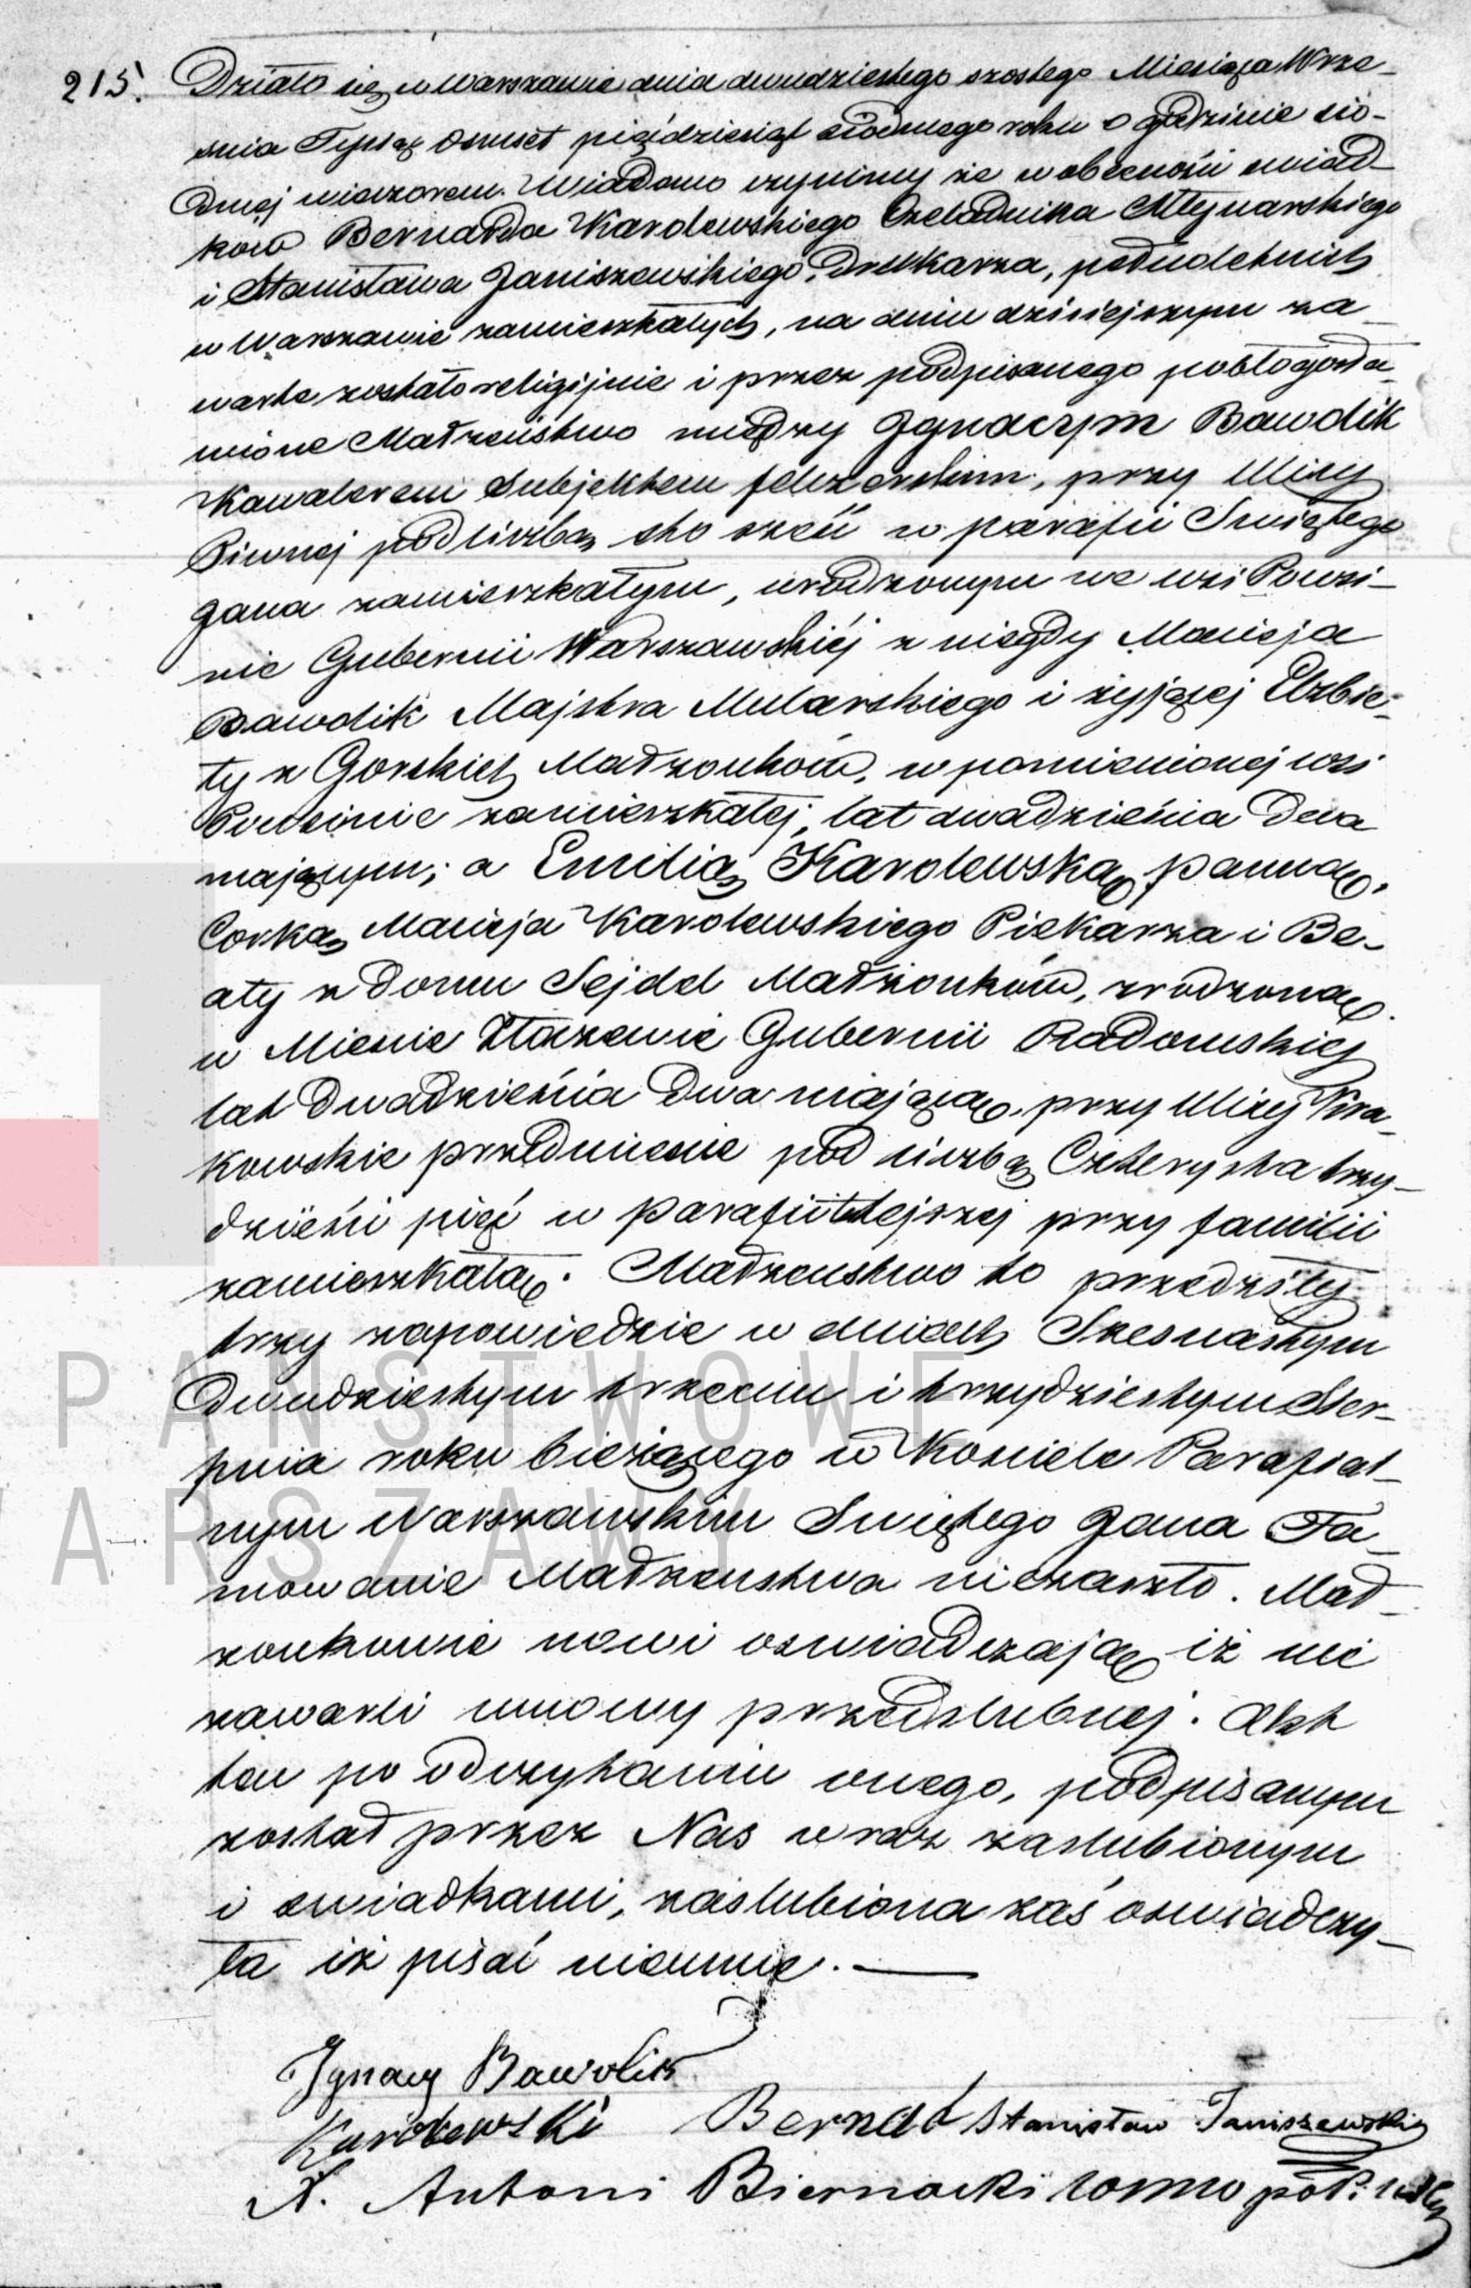 215. Działo się w Warszawie dnia dwudziestego szostego Miesiąca Wrze-
snia Tysiąc Osmset pięćdziesiąt siodmego roku o godzinie sio-
dmej wieczorem. Wiadomo czynimy że w obecności swiad-
kow Bernarda Karolewskiego Czeladnika Młynarskiego
i Stanisława Janiszewskiego, Drukarza, pełnoletnich
w Warszawie zamieszkałych, na dniu dzisiejszym za-
warte zostało religijnie i przez podpisanego pobłogosła-
wione Małżeństwo między Ignacym Bawolik
Kawalerem Subjektem felczerskim, przy Ulicy
Piwnej pod liczbą sto sześć w parafii Swiętego
Jana zamieszkałym, urodzonym we wsi Powsi-
nie Gubernii Warszawskiéj z niegdy Macieja
Bawolik Majstra Mularskiego i żyjącej Elżbie-
ty z Gorskich Małżonków, w pomienionej wsi
Powsinie zamieszkałej, lat dwadzieścia dwa
mającym; a Emilią Karolewską panną,
Corką Macieja Karolewskiego Piekarza i Be-
aty z domu Sejdel Małżonków, zrodzoną
w Miescie Gubernii Radomskiej
lat dwadzieścia dwa mającą, przy Ulicy Kra-
kowskie przedmiescie pod liczbą Czterysta trzy-
dzieści pięć w parafii tutejszej przy familii
zamieszkałą. Małżenstwo to przedziły
trzy zapowiedzie w dniach Szesnastym
Dwudziestym trzecim i trzydziestym Sier-
pnia roku bieżącego w Kosciele Parafial-
nym Warszawskim Swiętego Jana Ta-
mowanie Małżenstwa niezaszło. Mał-
żonkowie nowi oswiadczają iż nie
zawarli umowy przedslubnej. Akt
ten po odczytaniu onego, podpisanym
został przez Nas wraz zaslubionym
i swiadkami, zaslubiona zaś oswiadczy-
ła iż pisać nieumie.
Ignacy Bawolik
Karolewski Bernad Stanisław Janiszewski
X. Antoni Biernacki
PAŃSTWOWE
WARSZAWY